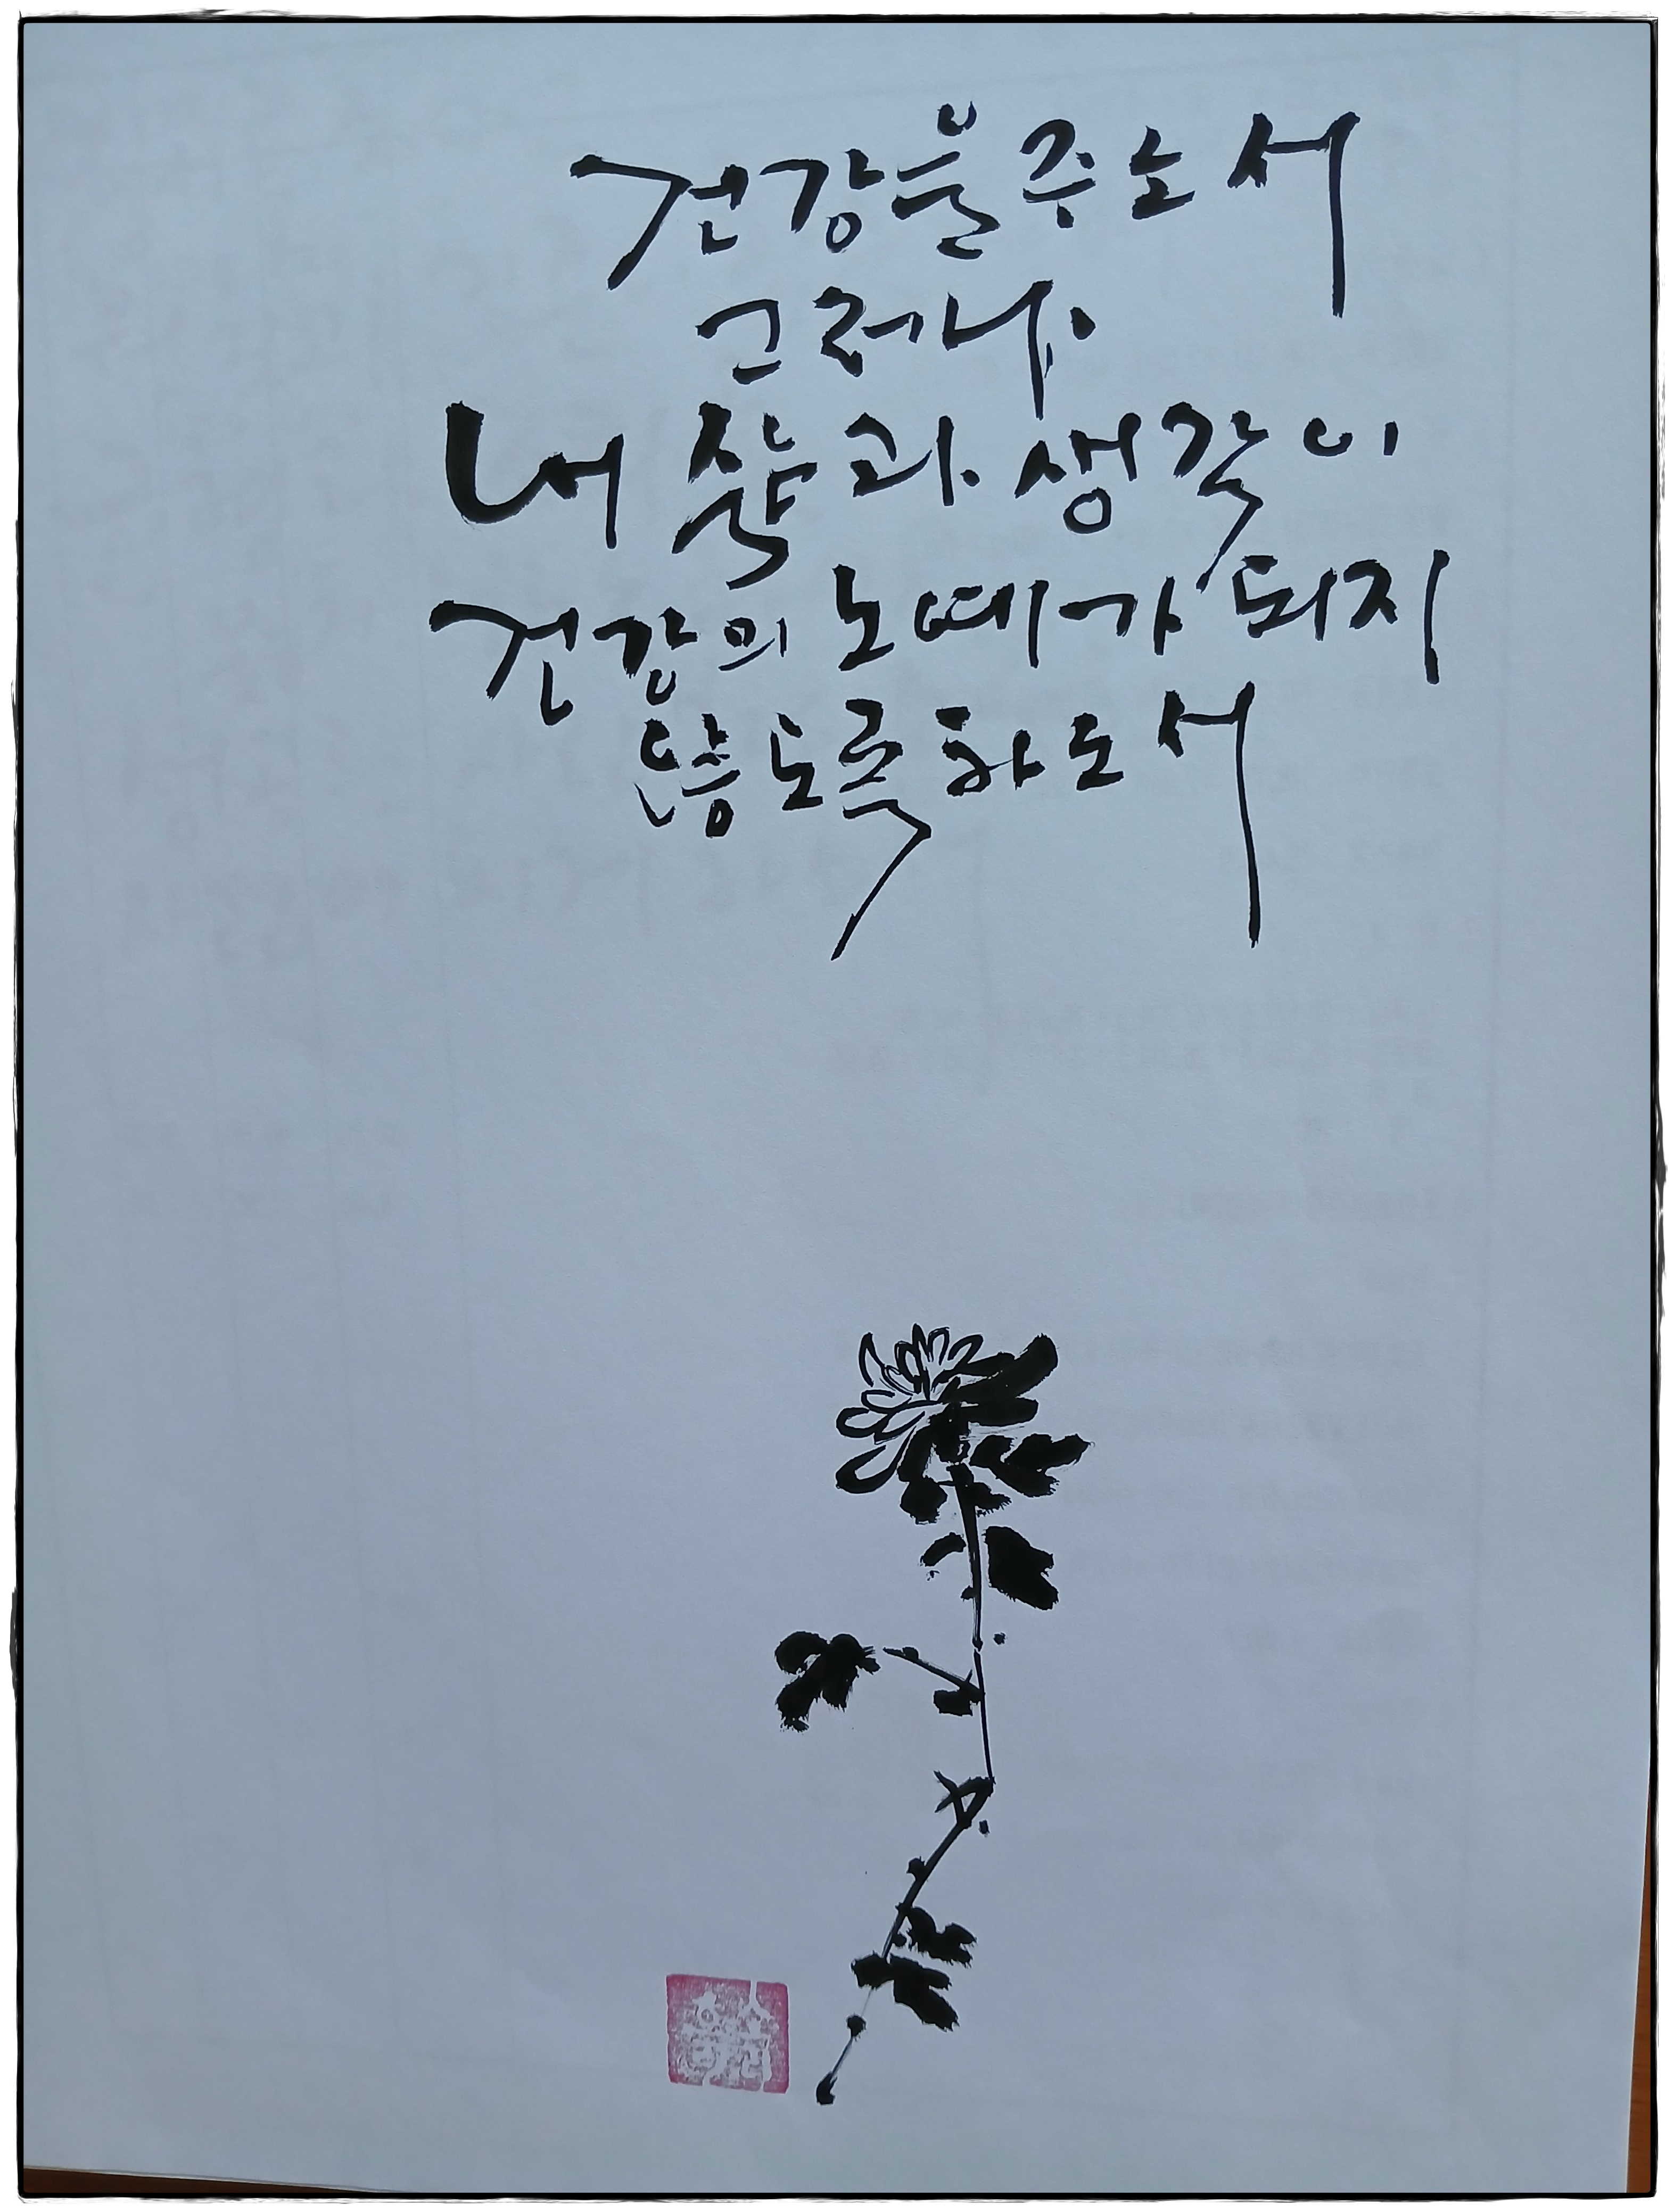 건강을 주소서
그러나
내 삶과 생각이
건강의 노예가 되지
않도록 하소서